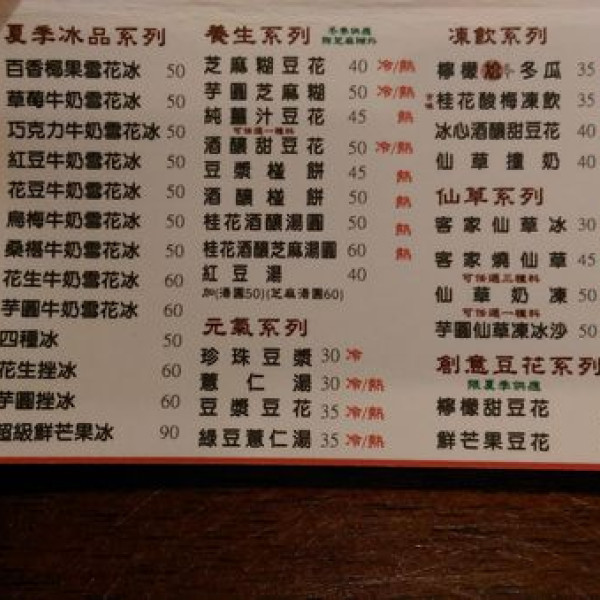 夏季冰品系列
百香椰果雪花冰 50
草莓牛奶雪花冰 50
巧克力牛奶雪花冰 50
紅豆牛奶雪花冰 50
花豆牛奶雪花冰 50
烏梅牛奶雪花冰 50
桑椹牛奶雪花冰 50
花生牛奶雪花冰 60
芋圓牛奶雪花冰 60
四種冰 50
花生挫冰 60
芋圓挫冰 60
超級鮮芒果冰 90
養生系列 冬季供應
除芝麻糊外
芝麻糊豆花 40 冷/熱
芋圓芝麻糊 50 冷/熱
純薑汁豆花 45 熱
可任選一種料
酒釀甜豆花 50 冷/熱
豆漿椪餅 45 熱
酒釀椪餅 50 熱
桂花酒釀湯圓 50 熱
桂花酒釀芝麻湯圓 60 熱
紅豆湯 40
加(湯圓50)(芝麻湯圓60)
元氣系列
珍珠豆漿 30 冷
薏仁湯 30 冷/熱
豆漿豆花 35 冷/熱
綠豆薏仁湯 35 冷/熱
凍飲系列
檸檬 冬瓜 35
桂花酸梅凍飲 35
冰心酒釀甜豆花 40
仙草撞奶 40
仙草系列
客家仙草冰 30
客家燒仙草 45
可任選三種料
仙草奶凍 50
可任選一種料
芋圓仙草凍冰沙 50
創意豆花系列
限夏季供應
檸檬甜豆花
鮮芒果豆花